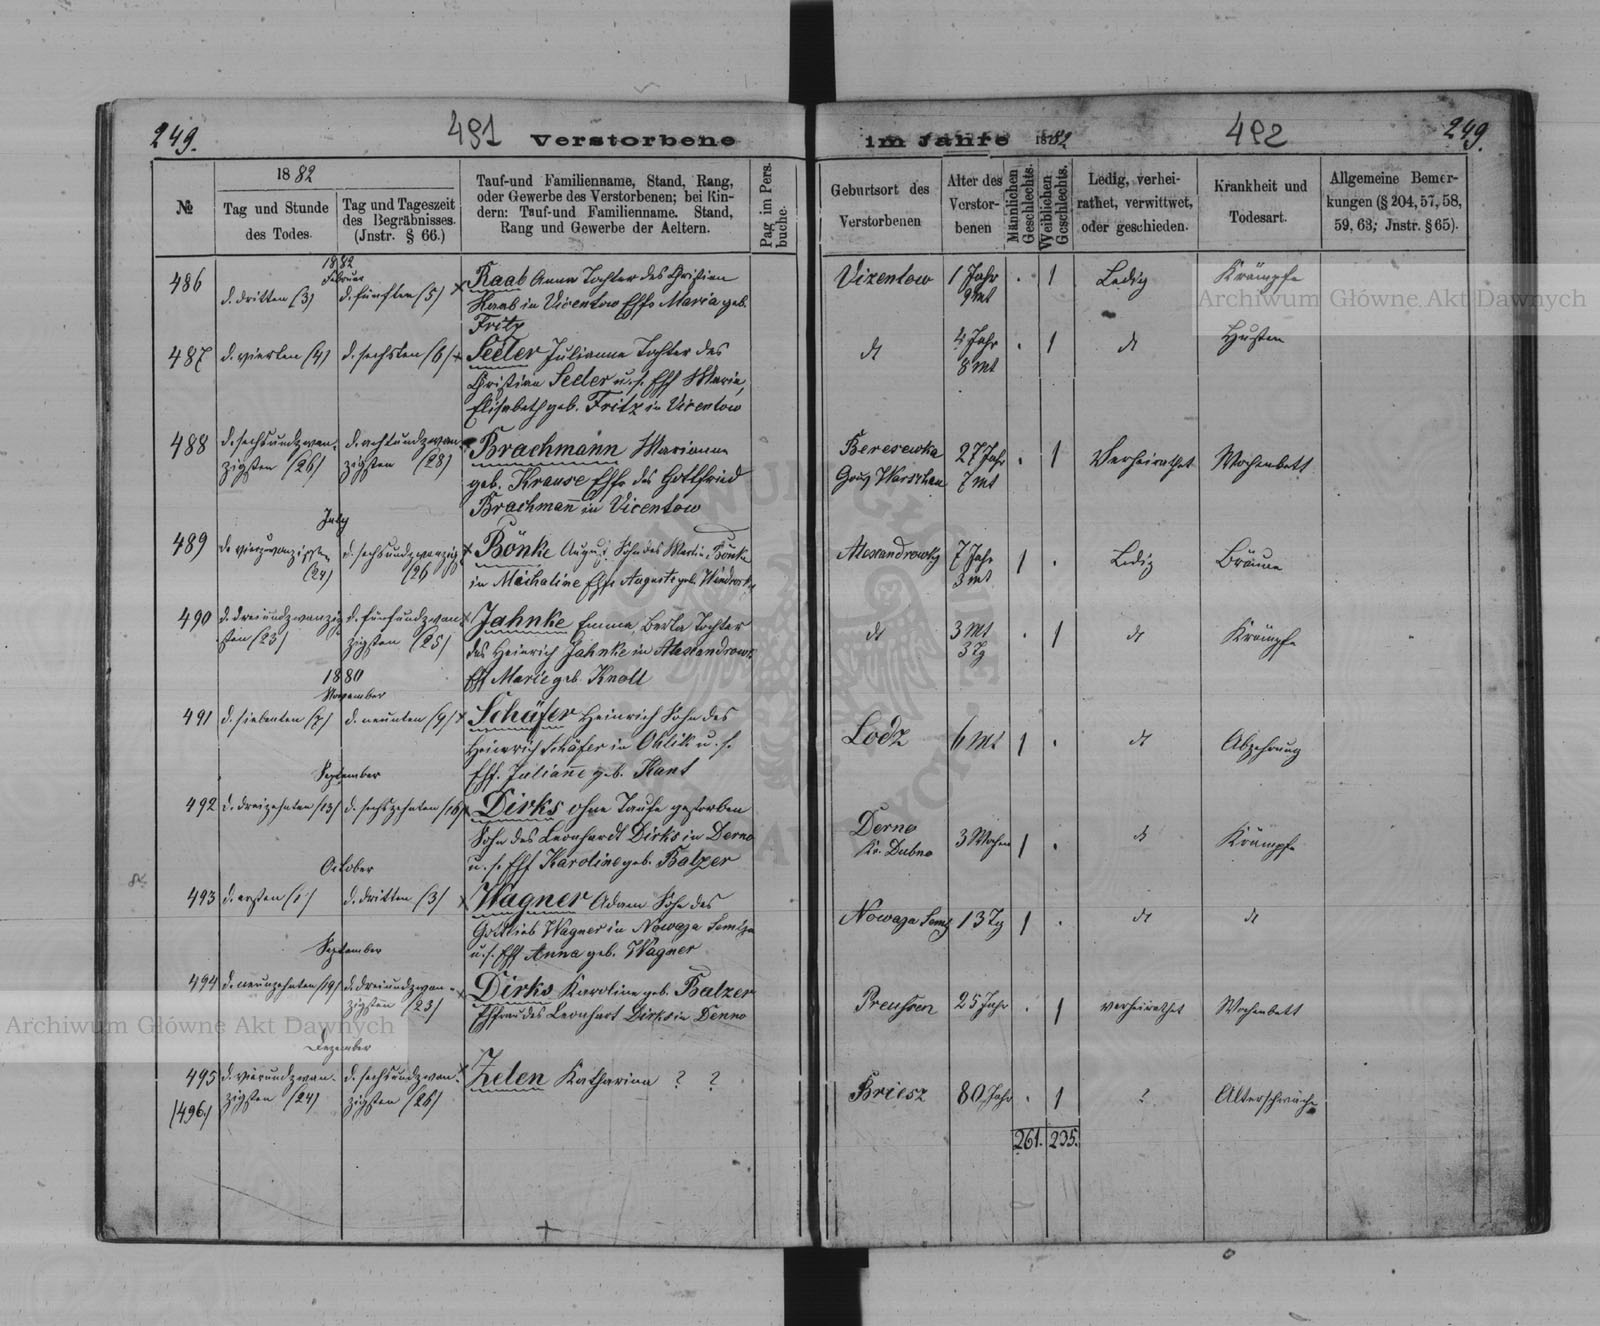 249.
491
Verstorbene
im Jahre 1882
492
249.
№
1882
Tag und Stunde
des Todes.
Tag und Tageszeit
des Begräbnisses.
(Jnstr. § 66.)
Tauf-und Familienname, Stand, Rang,
oder Gewerbe des Verstorbenen; bei Kin-
dern: Tauf-und Familienname. Stand,
Rang und Gewerbe der Aeltern.
Pag. im Pers.
buche.
Geburtsort des
Verstorbenen
Alter des
Verstor-
benen
Männlichen
Geschlechts.
Weiblichen
Geschlechts.
Ledig, verhei-
rathet, verwittwet,
oder geschieden.
Krankheit und
Todesart.
Allgemeine Bemer-
kungen (§ 204, 57, 58,
59, 63; Jnstr. § 65).
1882
Februar
486 d. dritten (3) d. fünften (5) x Raab Anna Tochter des Christian Vizentow 1 Jahr . 1 Ledig Krämpfe
Raab in Vicentow Ehfr Maria geb. 9 mt
Fritz
487 d. vierten (4) d. sechsten (6) x Seeler Julianna Tochter des dt 4 Jahr . 1 dt Husten
Christian Seeler u. s. Ehf Maria 8 mt
Elisabeth geb. Fritz in Vicentow
488 d. sechsundzwan- d. achtundzwan- Brachmann Marianna Beresewka 27 Jahr . 1 Verheirathet Wochenbett
zigsten (26) zigsten (28) geb. Krause Ehfr des Gottfried Gouv Warschau 7 mt
Brachmann in Vicentow
July
489 d. vierzwanzigsten d. sechsundzwanzig x Bönke August Sohn des Martin Bönke Alexandrowka 7 Jahr 1 . Ledig Bräune
(24) (26 in Michaline Ehfr Auguste geb. 3 mt
490 d. dreiundzwanzig- d. fünfundzwan- x Jahnke Emma, Berta Tochter dt 3 Mt . 1 dt Krämpfe
sten (23) zigsten (25) des Heinrich Jahnke in Alexandrowk 3 Tg
Ehf Marie geb. Knoll
1880
November
491 d. siebenten (7) d. neunten (9) x Schäfer Heinrich Sohn des Lodz 6 Mt 1 . dt Abzehrung
Heinrich Schäfer in Ohlik u. s.
Ehf. Julianne geb. Kant
September
492 d. dreizehnten (13) d. sechszehnten (16) x Dirks ohne Taufe gestorben Derno 3 Wochen 1 . dt Krämpfe
Sohn des Leonhardt Dirks in Derno Kr. Dubno
u. s. Ehf Karoline geb. Balzer
October
493 d. ersten (1) d. dritten (3) x Wagner Adam Sohn des Nowaja Semlj 13 Tg 1 . dt dt
Gottlieb Wagner in Nowaja Semlja
u. s. Ehf Anna geb. Wagner
September
494 d. neunzehnten (19) d. dreiundzwan- x Dirks Karoline geb. Balzer Preussen 25 Jahr . 1 verheirathet Wochenbett
zigsten (23) Ehfrau des Leonhart Dirks in Denno
Dezember
495 d. vierundzwan- d. sechsundzwan- x Zelen Katharina ? ? Briesz 80 Jahr . 1 ? Altersschwäche
(496) zigsten (24) zigsten (26)
261. 235.
Archiwum Główne Akt Dawnych
Archiwum Główne Akt Dawnych